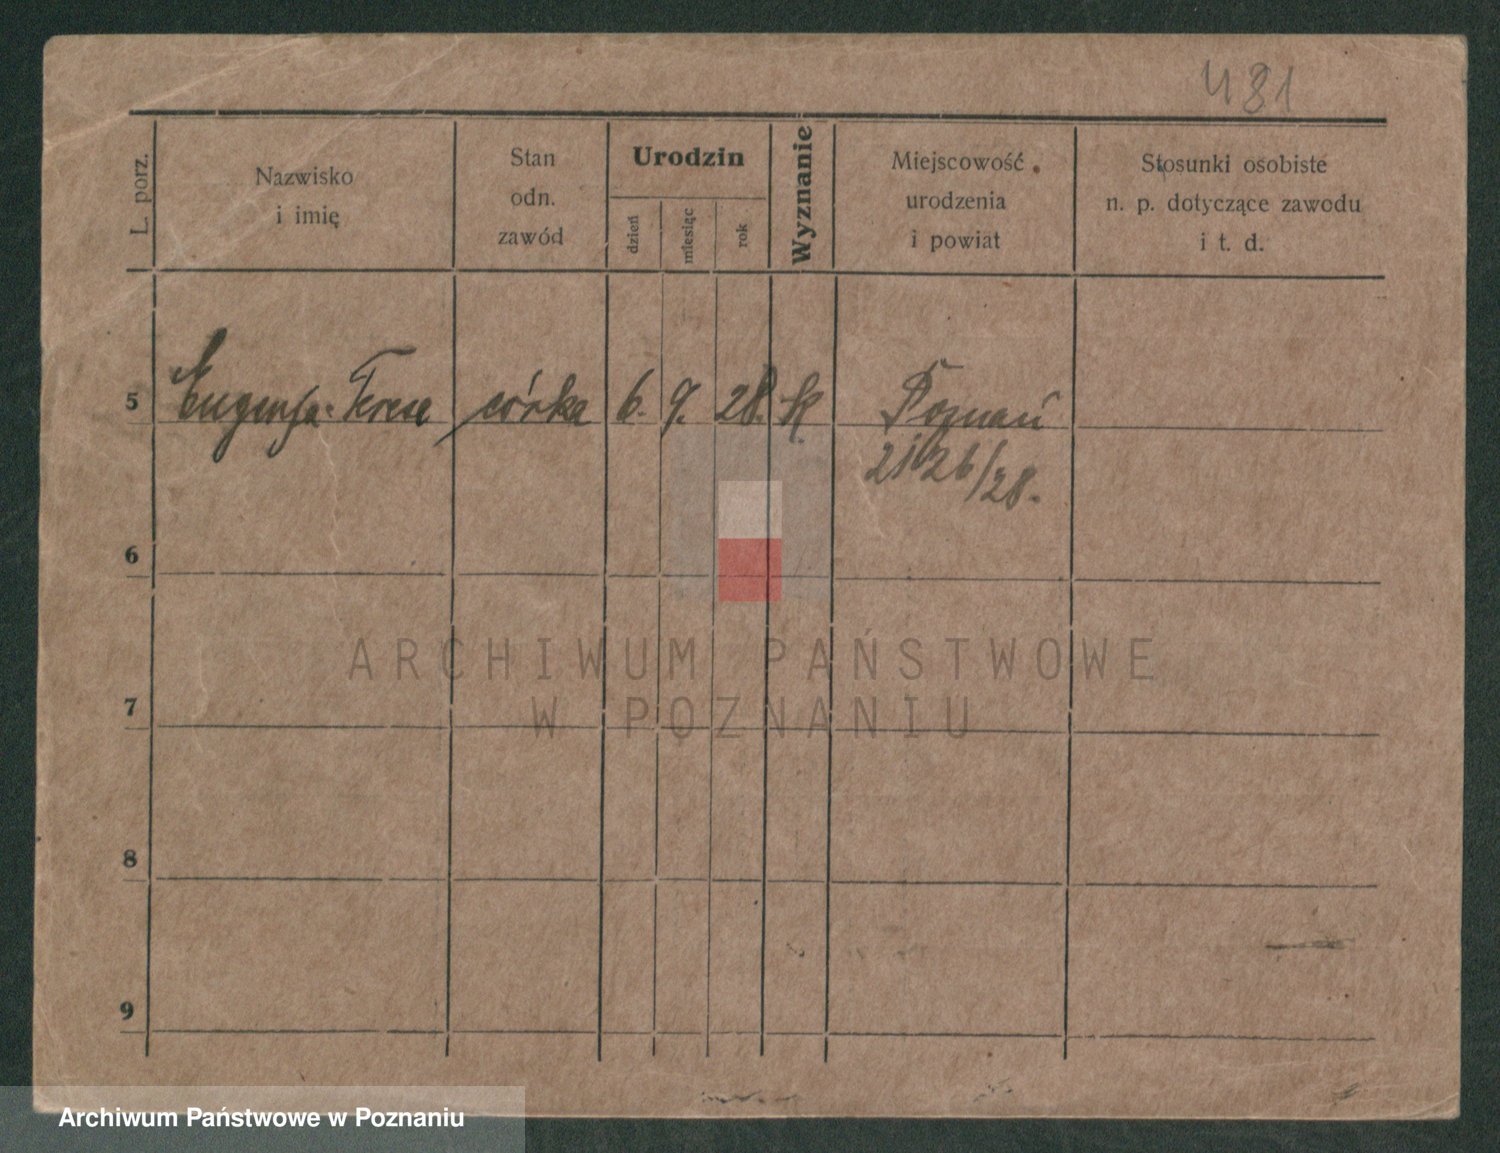 481
L. porz.
Nazwisko
i imię
Stan
odn.
zawód
Urodzin
dzień
miesiąc
rok
Wyznanie
Miejscowość
urodzenia
i powiat
Stosunki osobiste
n. p. dotyczące zawodu
i t. d.
5 Eugenja-Teresa córka 6. 9. 28. k. Poznań
2126/28.
6
7
8
9
ARCHIWUM PAŃSTWOWE
W POZNANIU
Archiwum Państwowe w Poznaniu